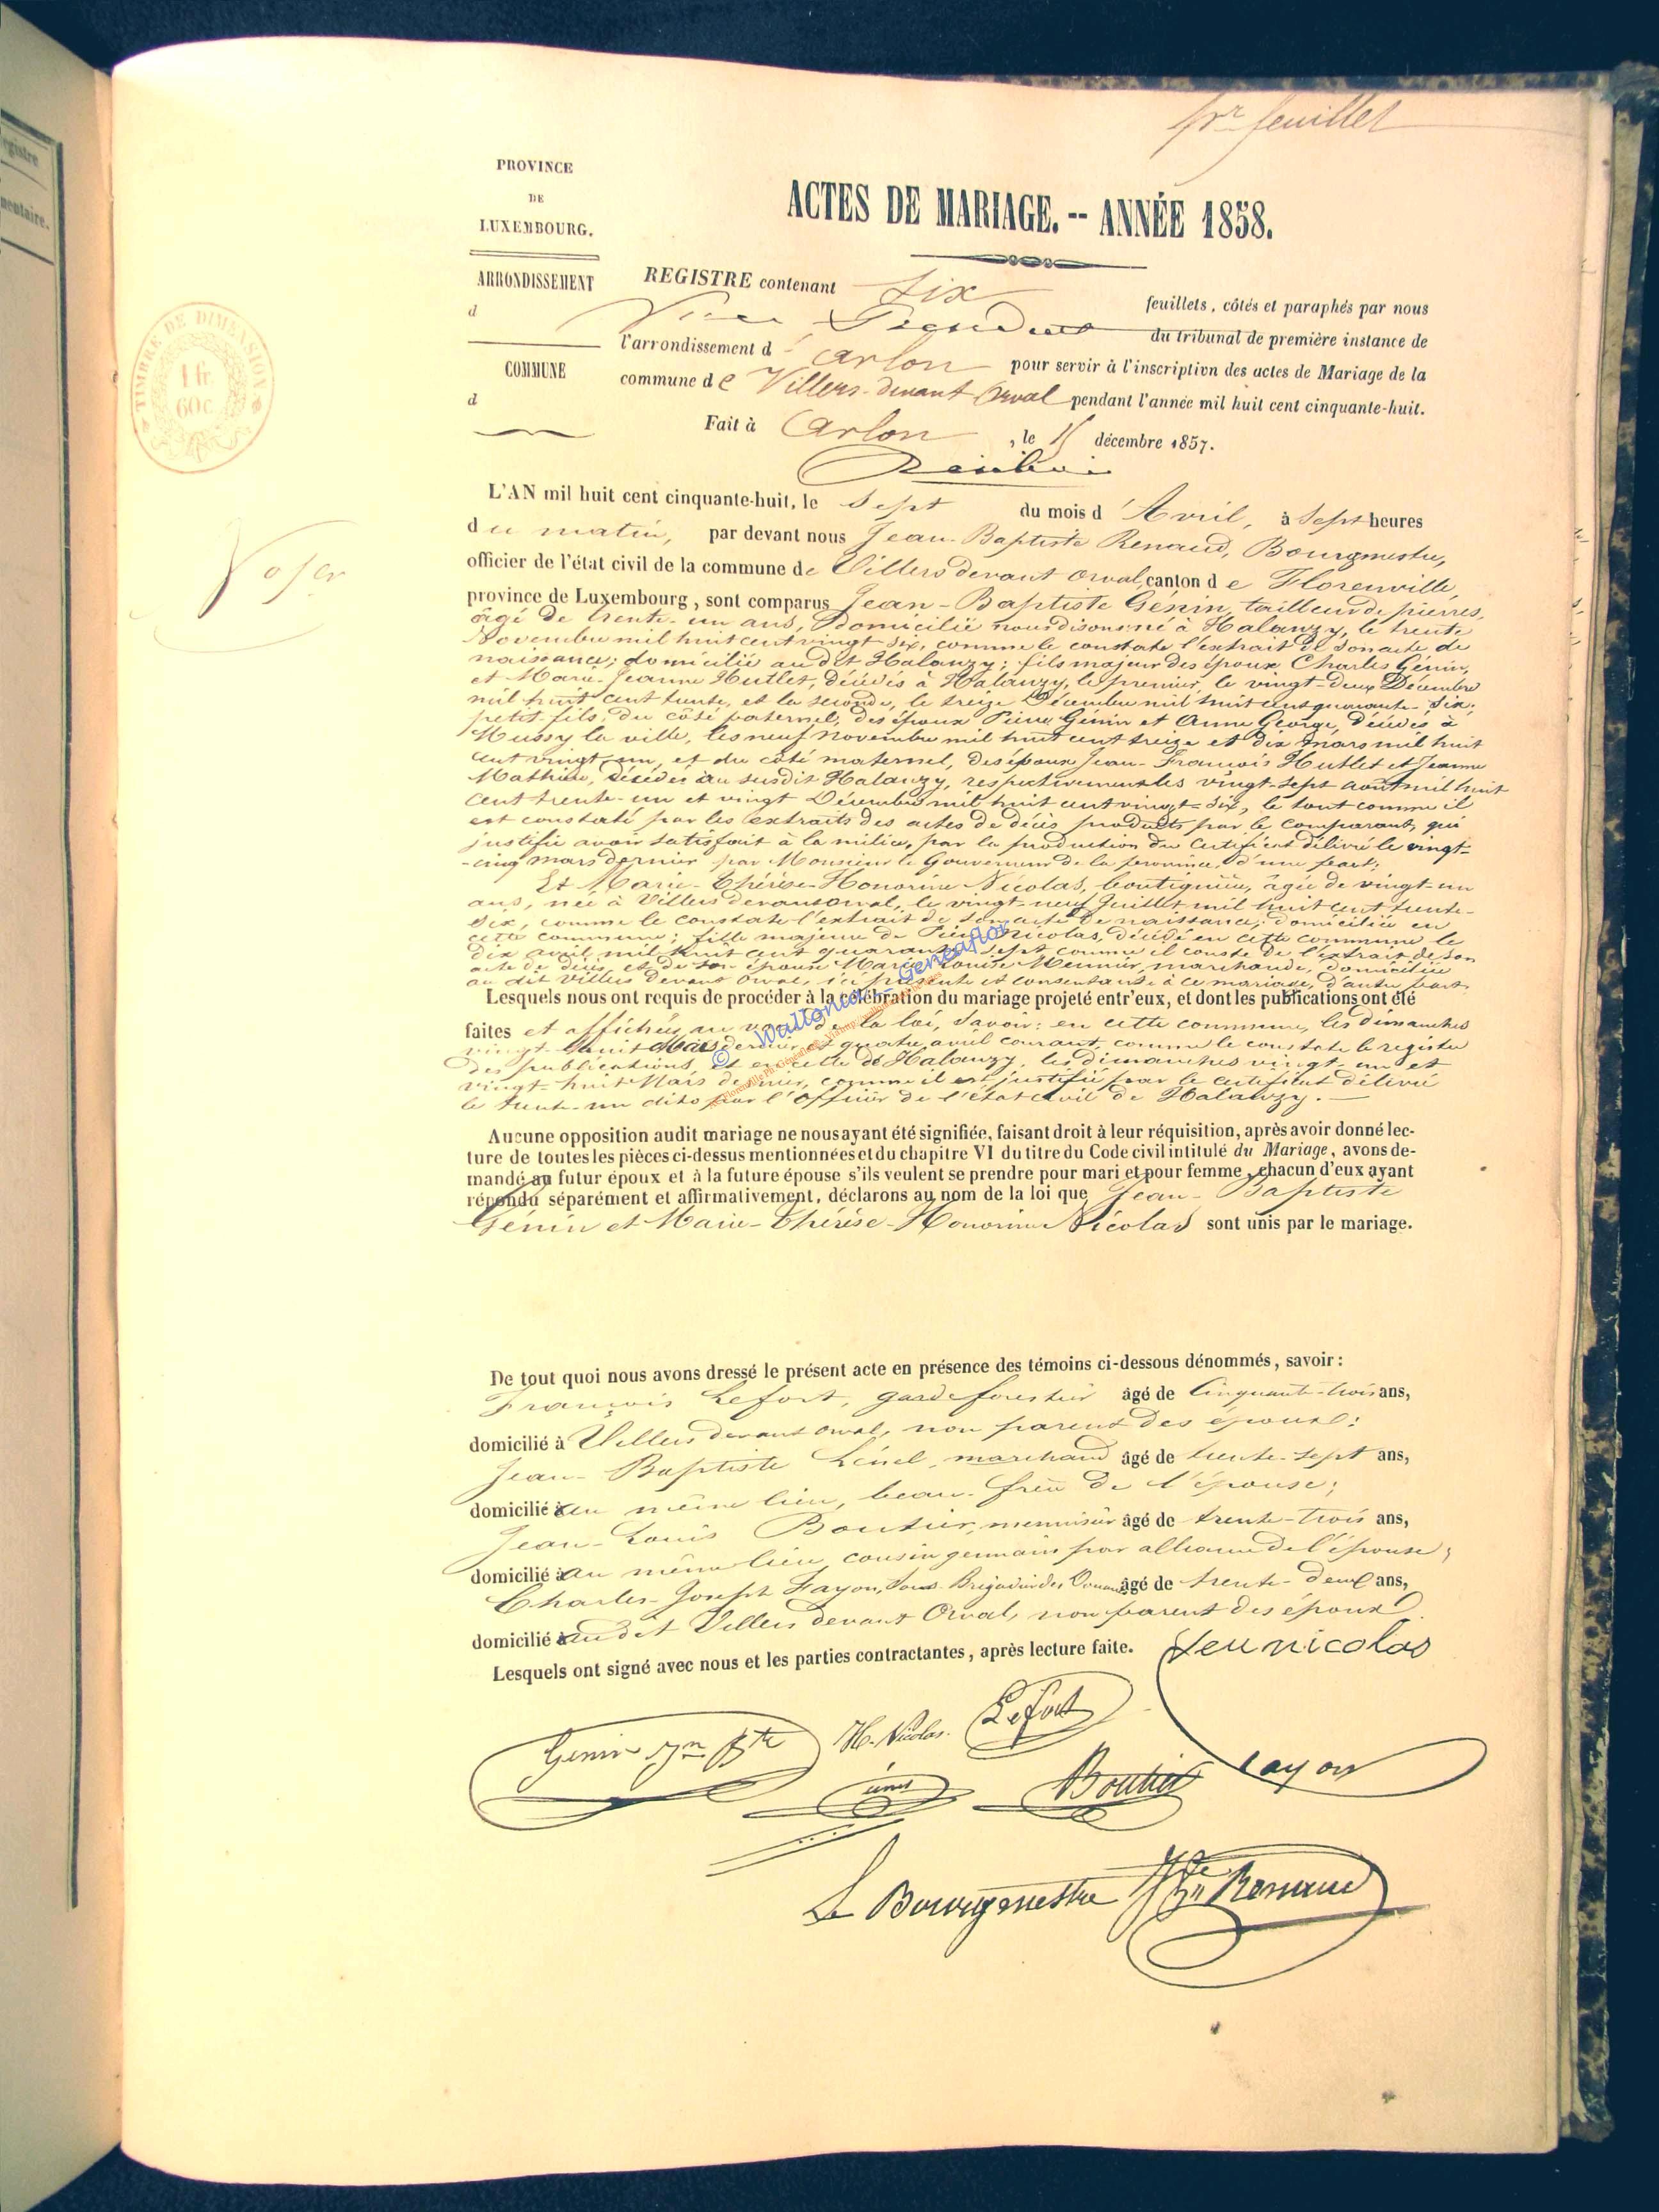 1r feuillet
PROVINCE
DE
LUXEMBOURG.
ACTES DE MARIAGE. -- ANNÉE 1858.
ARRONDISSEMENT
d
COMMUNE
d
egistre
mentaire.
TIMBRE DE DIMENSION
1 fr.
60 c.
REGISTRE contenant six feuillets, côtés et paraphés par nous
Vice Président du tribunal de première instance de
l'arrondissement d'arlon pour servir à l'inscription des actes de Mariage de la
commune de Villers-devant Orval pendant l'année mil huit cent cinquante-huit.
Fait à Arlon, le 15 décembre 1857.
L'AN mil huit cent cinquante-huit, le Sept du mois d'Avril, à Sept heures
du matin, par devant nous Jean-Baptiste Renaud, Bourgmestre,
officier de l'état civil de la commune de Villers devant Orval, canton de Florenville,
province de Luxembourg, sont comparus Jean-Baptiste Génin, tailleur de pierres,
âgé de trente-un ans, domicilié nous disons né à Halanzy, le trente
Novembre mil huit cent vingt-six, comme le constate l'extrait de son acte de
naissance; domicilié au dit Halanzy; fils majeur des époux Charles Génin,
et Marie-Jeanne Hutlet, décédés à Halanzy, le premier, le vingt-deux Décembre
mil huit cent trente, et la seconde, le treize Décembre mil huit cent quarante-six;
petit-fils, du côté paternel, des époux Pierre Génin et Anne George, décédés à
Mussy la ville, les neuf novembre mil huit cent treize et dix mars mil huit
cent vingt-un, et du côté maternel, des époux Jean-François Hutlet et Jeanne
Mathieu, décédés au susdit Halanzy, respectivement les vingt-sept août mil huit
cent trente-un et vingt Décembre mil huit cent vingt-six, le tout comme il
est constaté par les extraits des actes de décès produits par le comparant, qui
justifie avoir satisfait à la milice, par la production du certificat délivré le vingt-
-cinq mars dernier par Monsieur le Gouverneur de la province, d'une part;
Et Marie-Thérèse-Honorine Nicolas, boutiquière, âgée de vingt-un
ans, née à Villers devant Orval, le vingt-neuf Juillet mil huit cent trente-
six, comme le constate l'extrait de son acte de naissance; domiciliée en
cette commune; fille majeure de Pierre Nicolas, décédé en cette commune le
dix avril mil huit cent quarante-sept comme il conste de l'extrait de son
acte de décès, et de son épouse Marie Louise Meunier, marchande, domiciliée
au dit Villers devant Orval, ici présente et consentante à ce mariage, d'autre part.
© Wallonia - Geneaflor
Lesquels nous ont requis de procéder à la célébration du mariage projeté entr'eux, et dont les publications ont été
faites et affichées au vœu de la loi, savoir: en cette commune, les dimanches
vingt-huit Mars dernier et quatre avril courant, comme le constate le registre
des publications, et en celle de Halanzy, les dimanches vingt-un et
vingt-huit Mars dernier, comme il est justifié par le certificat délivré
le trente-un dito par l'Officier de l'état civil de Halanzy.
Aucune opposition audit mariage ne nous ayant été signifiée, faisant droit à leur réquisition, après avoir donné lec-
ture de toutes les pièces ci-dessus mentionnées et du chapitre VI du titre du Code civil intitulé du Mariage, avons de-
mandé au futur époux et à la future épouse s'ils veulent se prendre pour mari et pour femme, chacun d'eux ayant
répondu séparément et affirmativement, déclarons au nom de la loi que Jean-Baptiste
Génin et Marie-Thérèse-Honorine Nicolas sont unis par le mariage.
De tout quoi nous avons dressé le présent acte en présence des témoins ci-dessous dénommés, savoir:
François Lefort, garde forestier âgé de Cinquante-trois ans,
domicilié à Villers devant Orval, non parent des époux:
Jean-Baptiste marchand âgé de trente-sept ans,
domicilié au même lieu, beau-frère de l'épouse;
Jean-Louis Boutier, menuisier âgé de trente-trois ans,
domicilié au même lieu, cousin germain par alliance de l'épouse;
Charles-Joseph Fayon, Sous-Brigadier des Douanes âgé de trente-deux ans,
domicilié au dit Villers devant Orval, non parent des époux.
Lesquels ont signé avec nous et les parties contractantes, après lecture faite.
Genin Jn Bte
H. Nicolas.
Lefort
Boutier
Le Bourgmestre Jn Bte Renaud